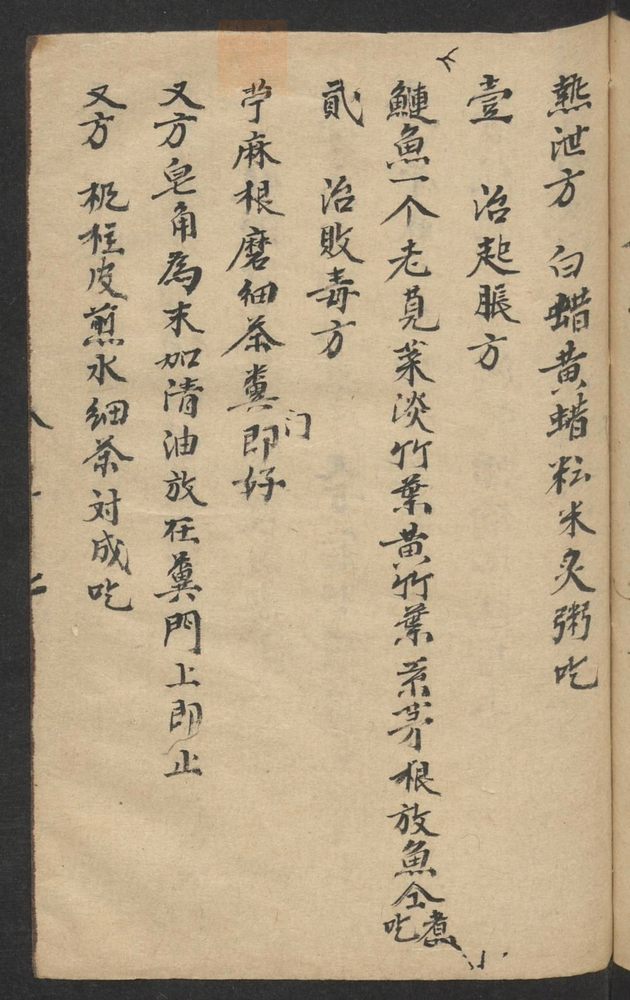 熱泄方 白蜡黄蜡粘米炙粥吃
壹 治起脹方
鰱魚一个老莧菜淡竹葉黄竹葉茶芽根放魚仝煮吃
貳 治敗毒方
苧麻根磨細茶糞门即好
又方皂角為末加清油放在糞門上即止
又方 板柱皮煎水細茶对成吃